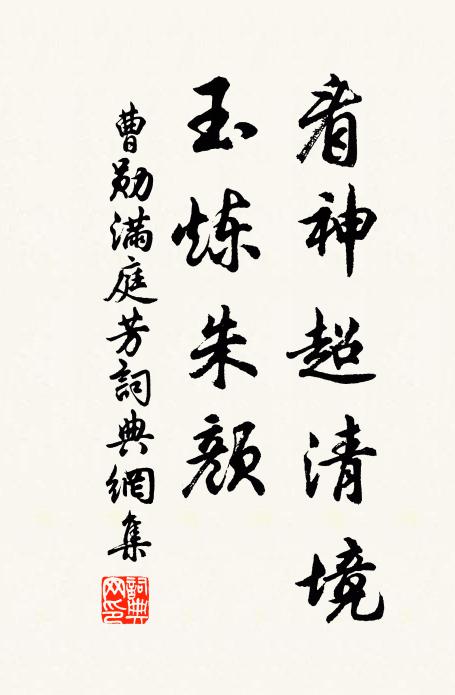 看神超清境
玉炼朱颜
曹勋满庭芳詞典網集
詞典网印